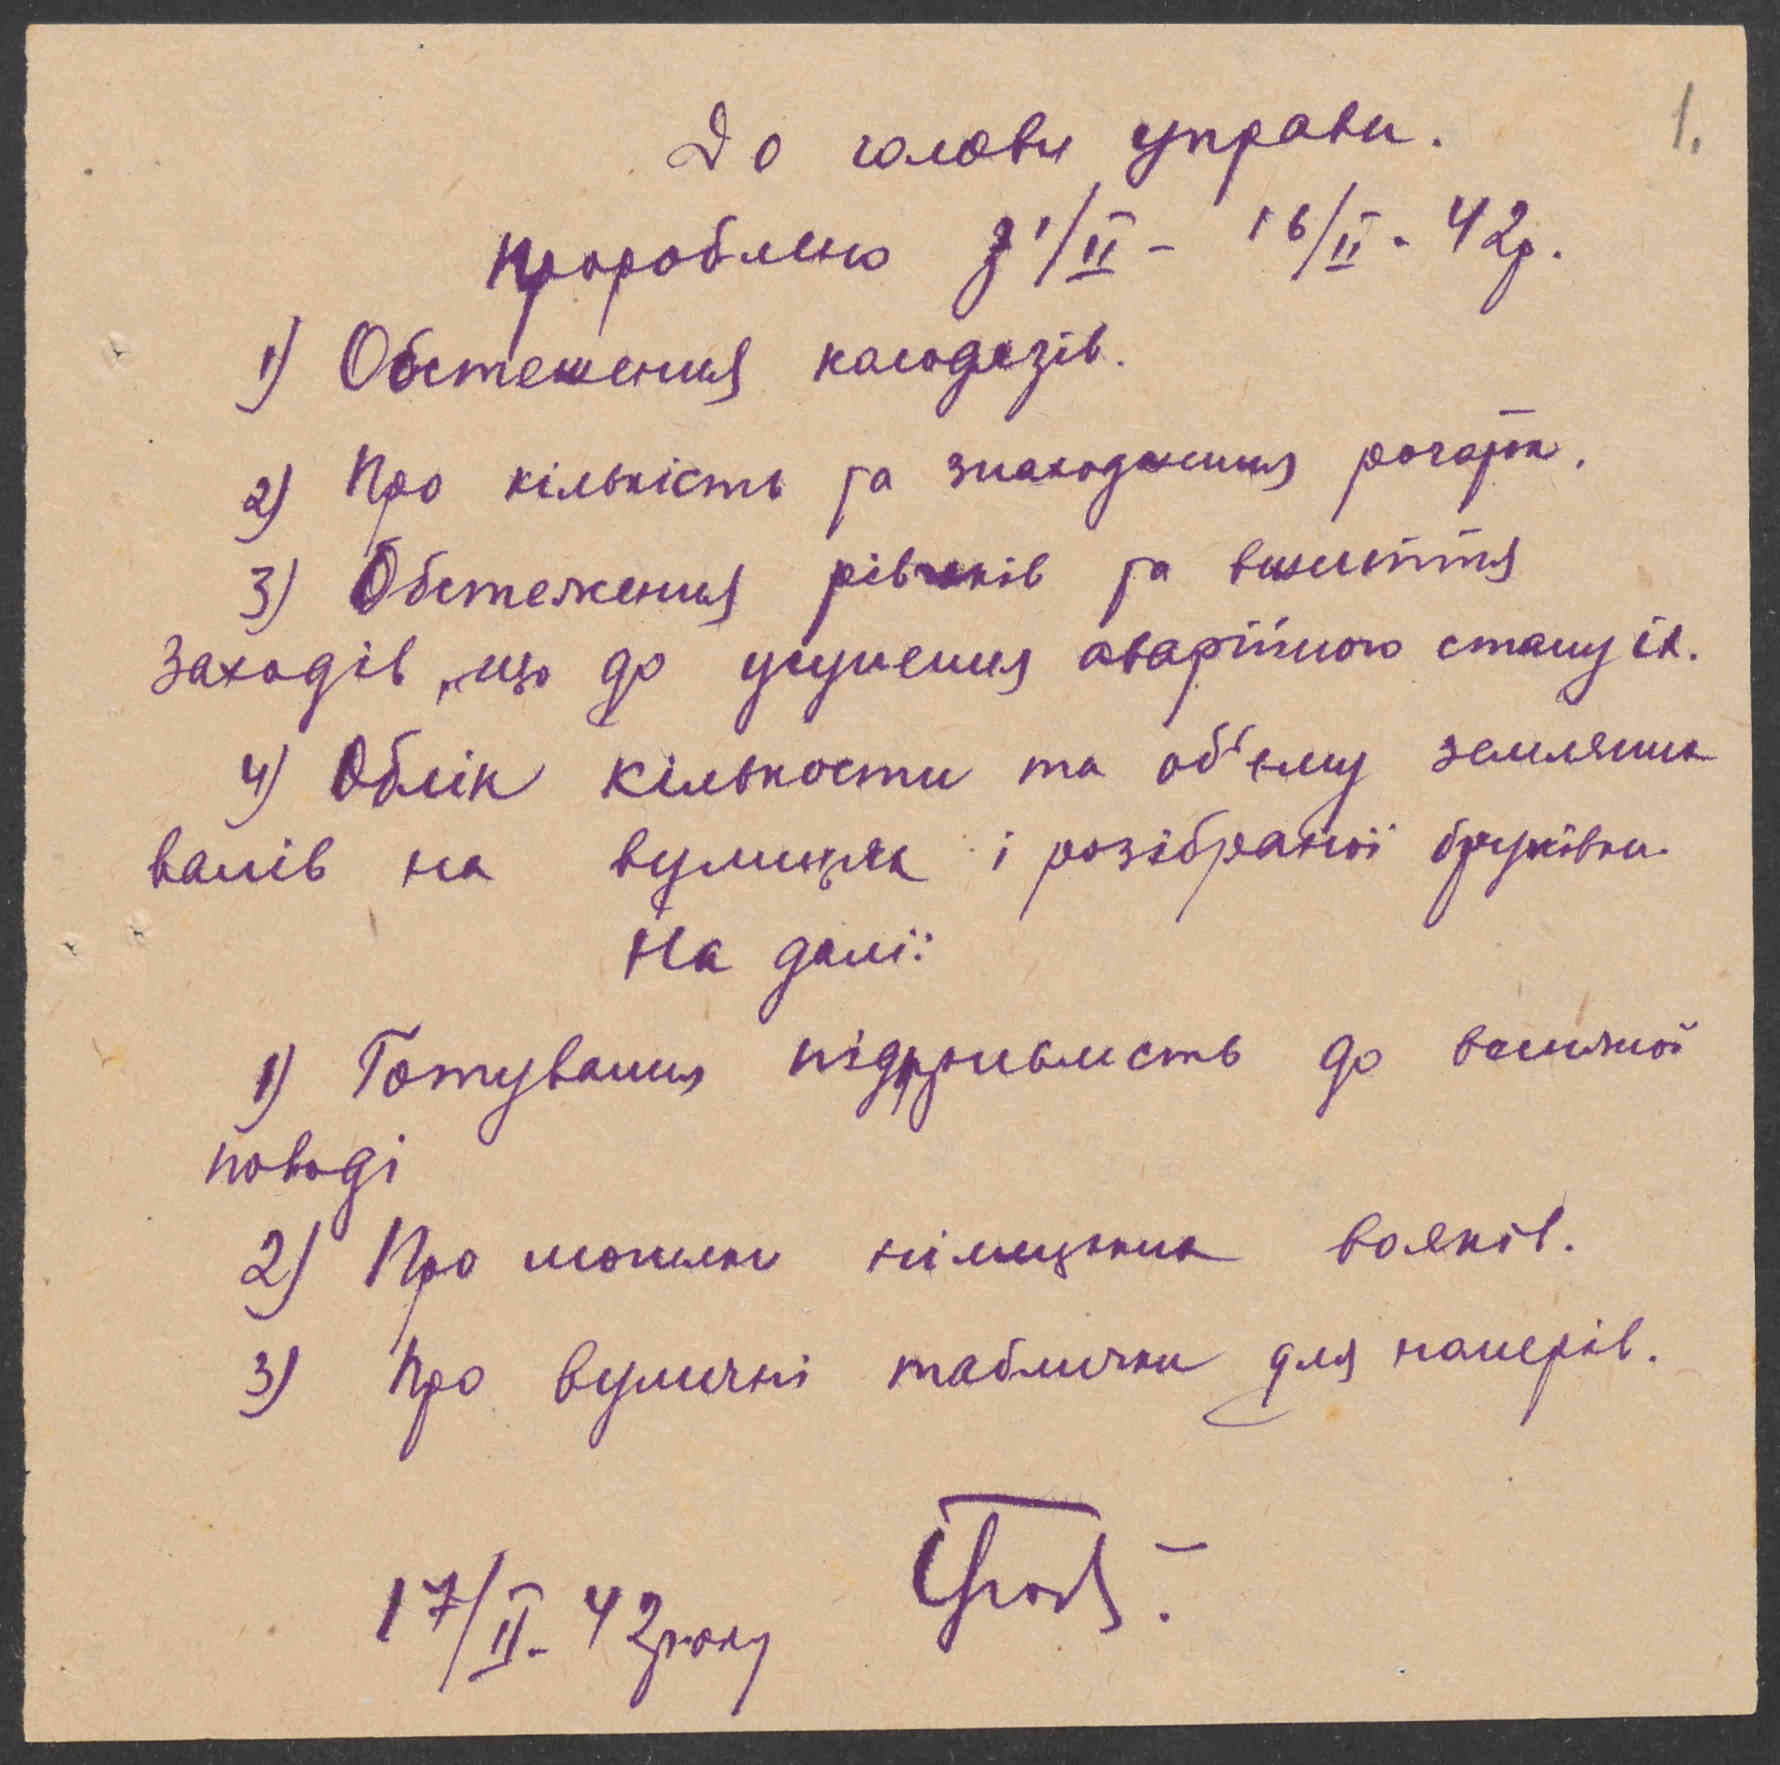 1.
До голови управи.
Пророблено з 1/II - 16/II. 42р.
1) Обстеження калодязів.
2) Про кількість та знаходження рогаток.
3) Обстеження рівчаків та вжиття
заходів, що до усунення аварійного стану їх.
4) Облік кількости та об'єму земляних
валів на вулицях і розібраної бруківки.
На далі:
1) Готування підприємств до весняної
поводі
2) Про могили німецьких вояків.
3) Про вуличні таблички для паперів.
17/II. 42 року